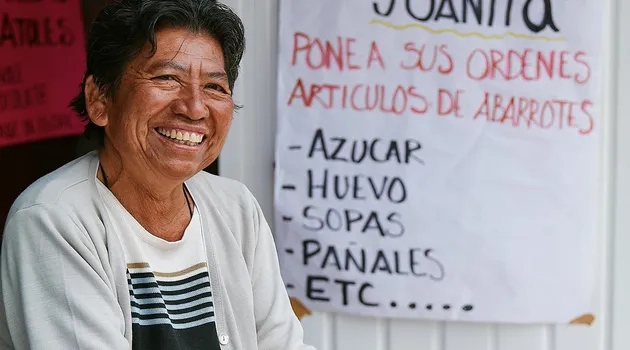 ATOLES
JUANITA
PONE A SUS ORDENES
ARTICULOS DE ABARROTES
- AZUCAR
- HUEVO
- SOPAS
- PAÑALES
- ETC.....